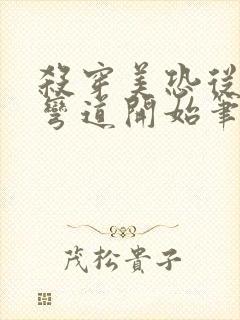 殺穿美恐從
彎道開始筆
茂松貴子